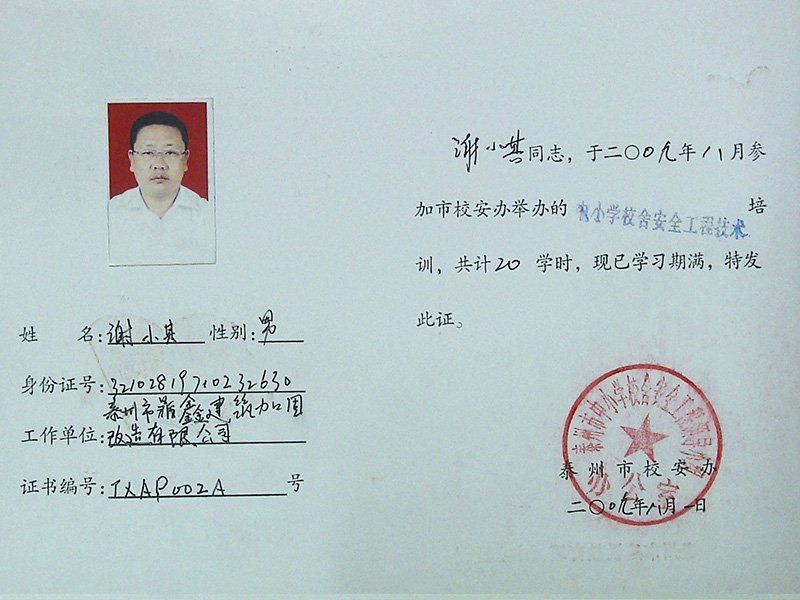 姓 名：谢小其 性别：男
身份证号：321028197102232630
泰州市 鑫建筑加固
工作单位：改造有限公司
证书编号：JXAP002A 号
谢小其同志，于二〇〇九年八月参
加市校安办举办的 中小学校舍安全工程技术 培
训，共计20学时，现已学习期满，特发
此证。
泰州市中小学校舍安全工程领导小组
办公室
泰州市校安办
二〇〇九年八月一日